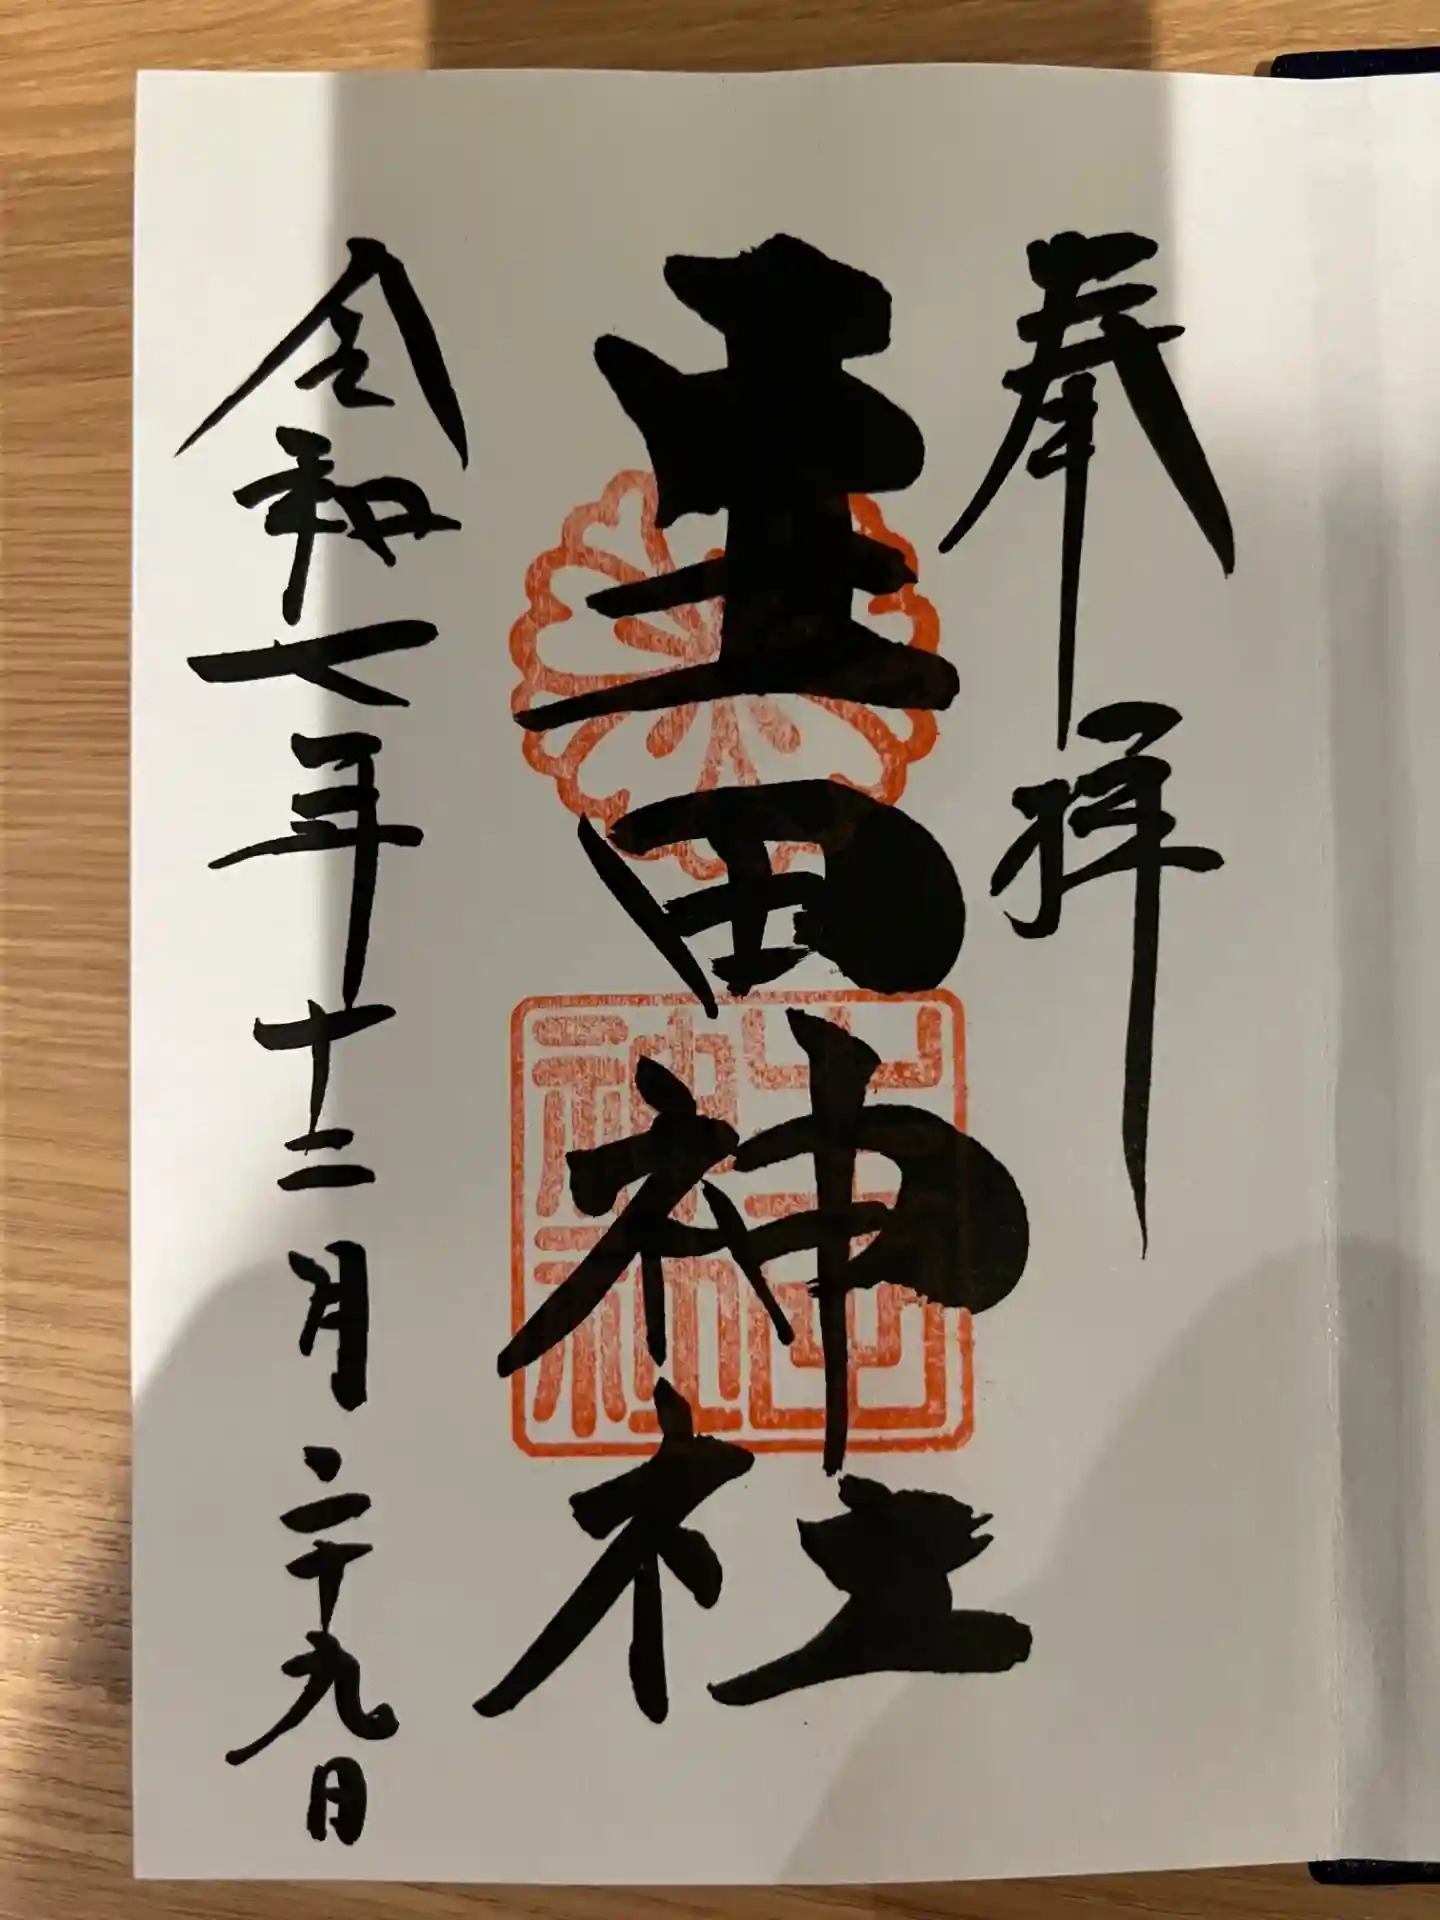 奉拝
生田神社
令和七年十二月二十九日